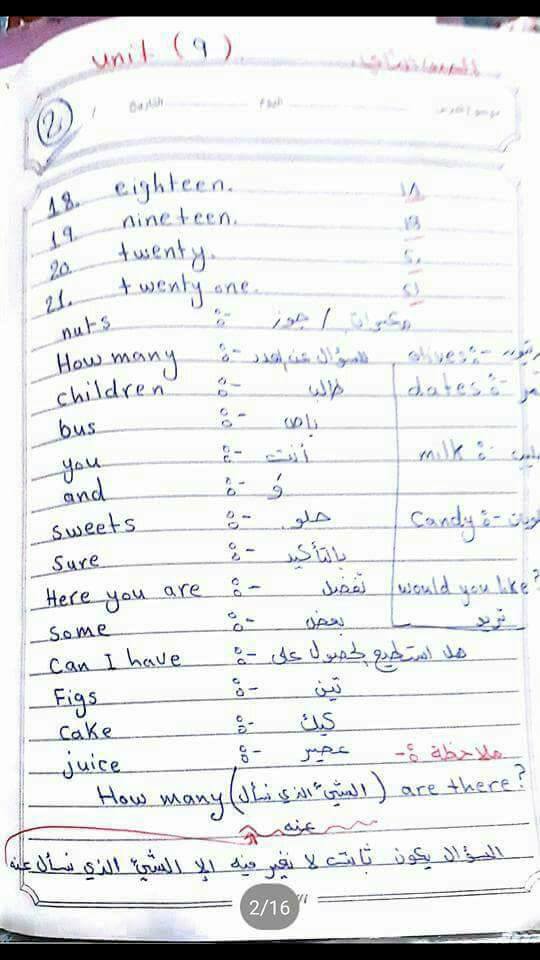 unit (9).
2
18. eighteen. ١٨
19 nineteen. ١٩
20 twenty. ٢٠
21. twenty one. ٢١
nuts :- مكسرات / جوز
How many :- للسؤال عن العدد olives :-
children :- طالب dates :- تمر
bus :- باص
you :- أنت milk :- حليب
and :- وَ
sweets :- حلو Candy :-
Sure :- بالتأكيد
Here you are :- تفضل would you like?
Some :- بعض تريد
Can I have :- هل استطيع الحصول على
Figs :- تين
Cake :- كيك
juice :- عصير ملاحظة :-
How many (الشيء الذي نسأل) are there?
عنه
السؤال يكون ثابت لا نغير فيه إلا الشيء الذي نسأل عنه
2/16